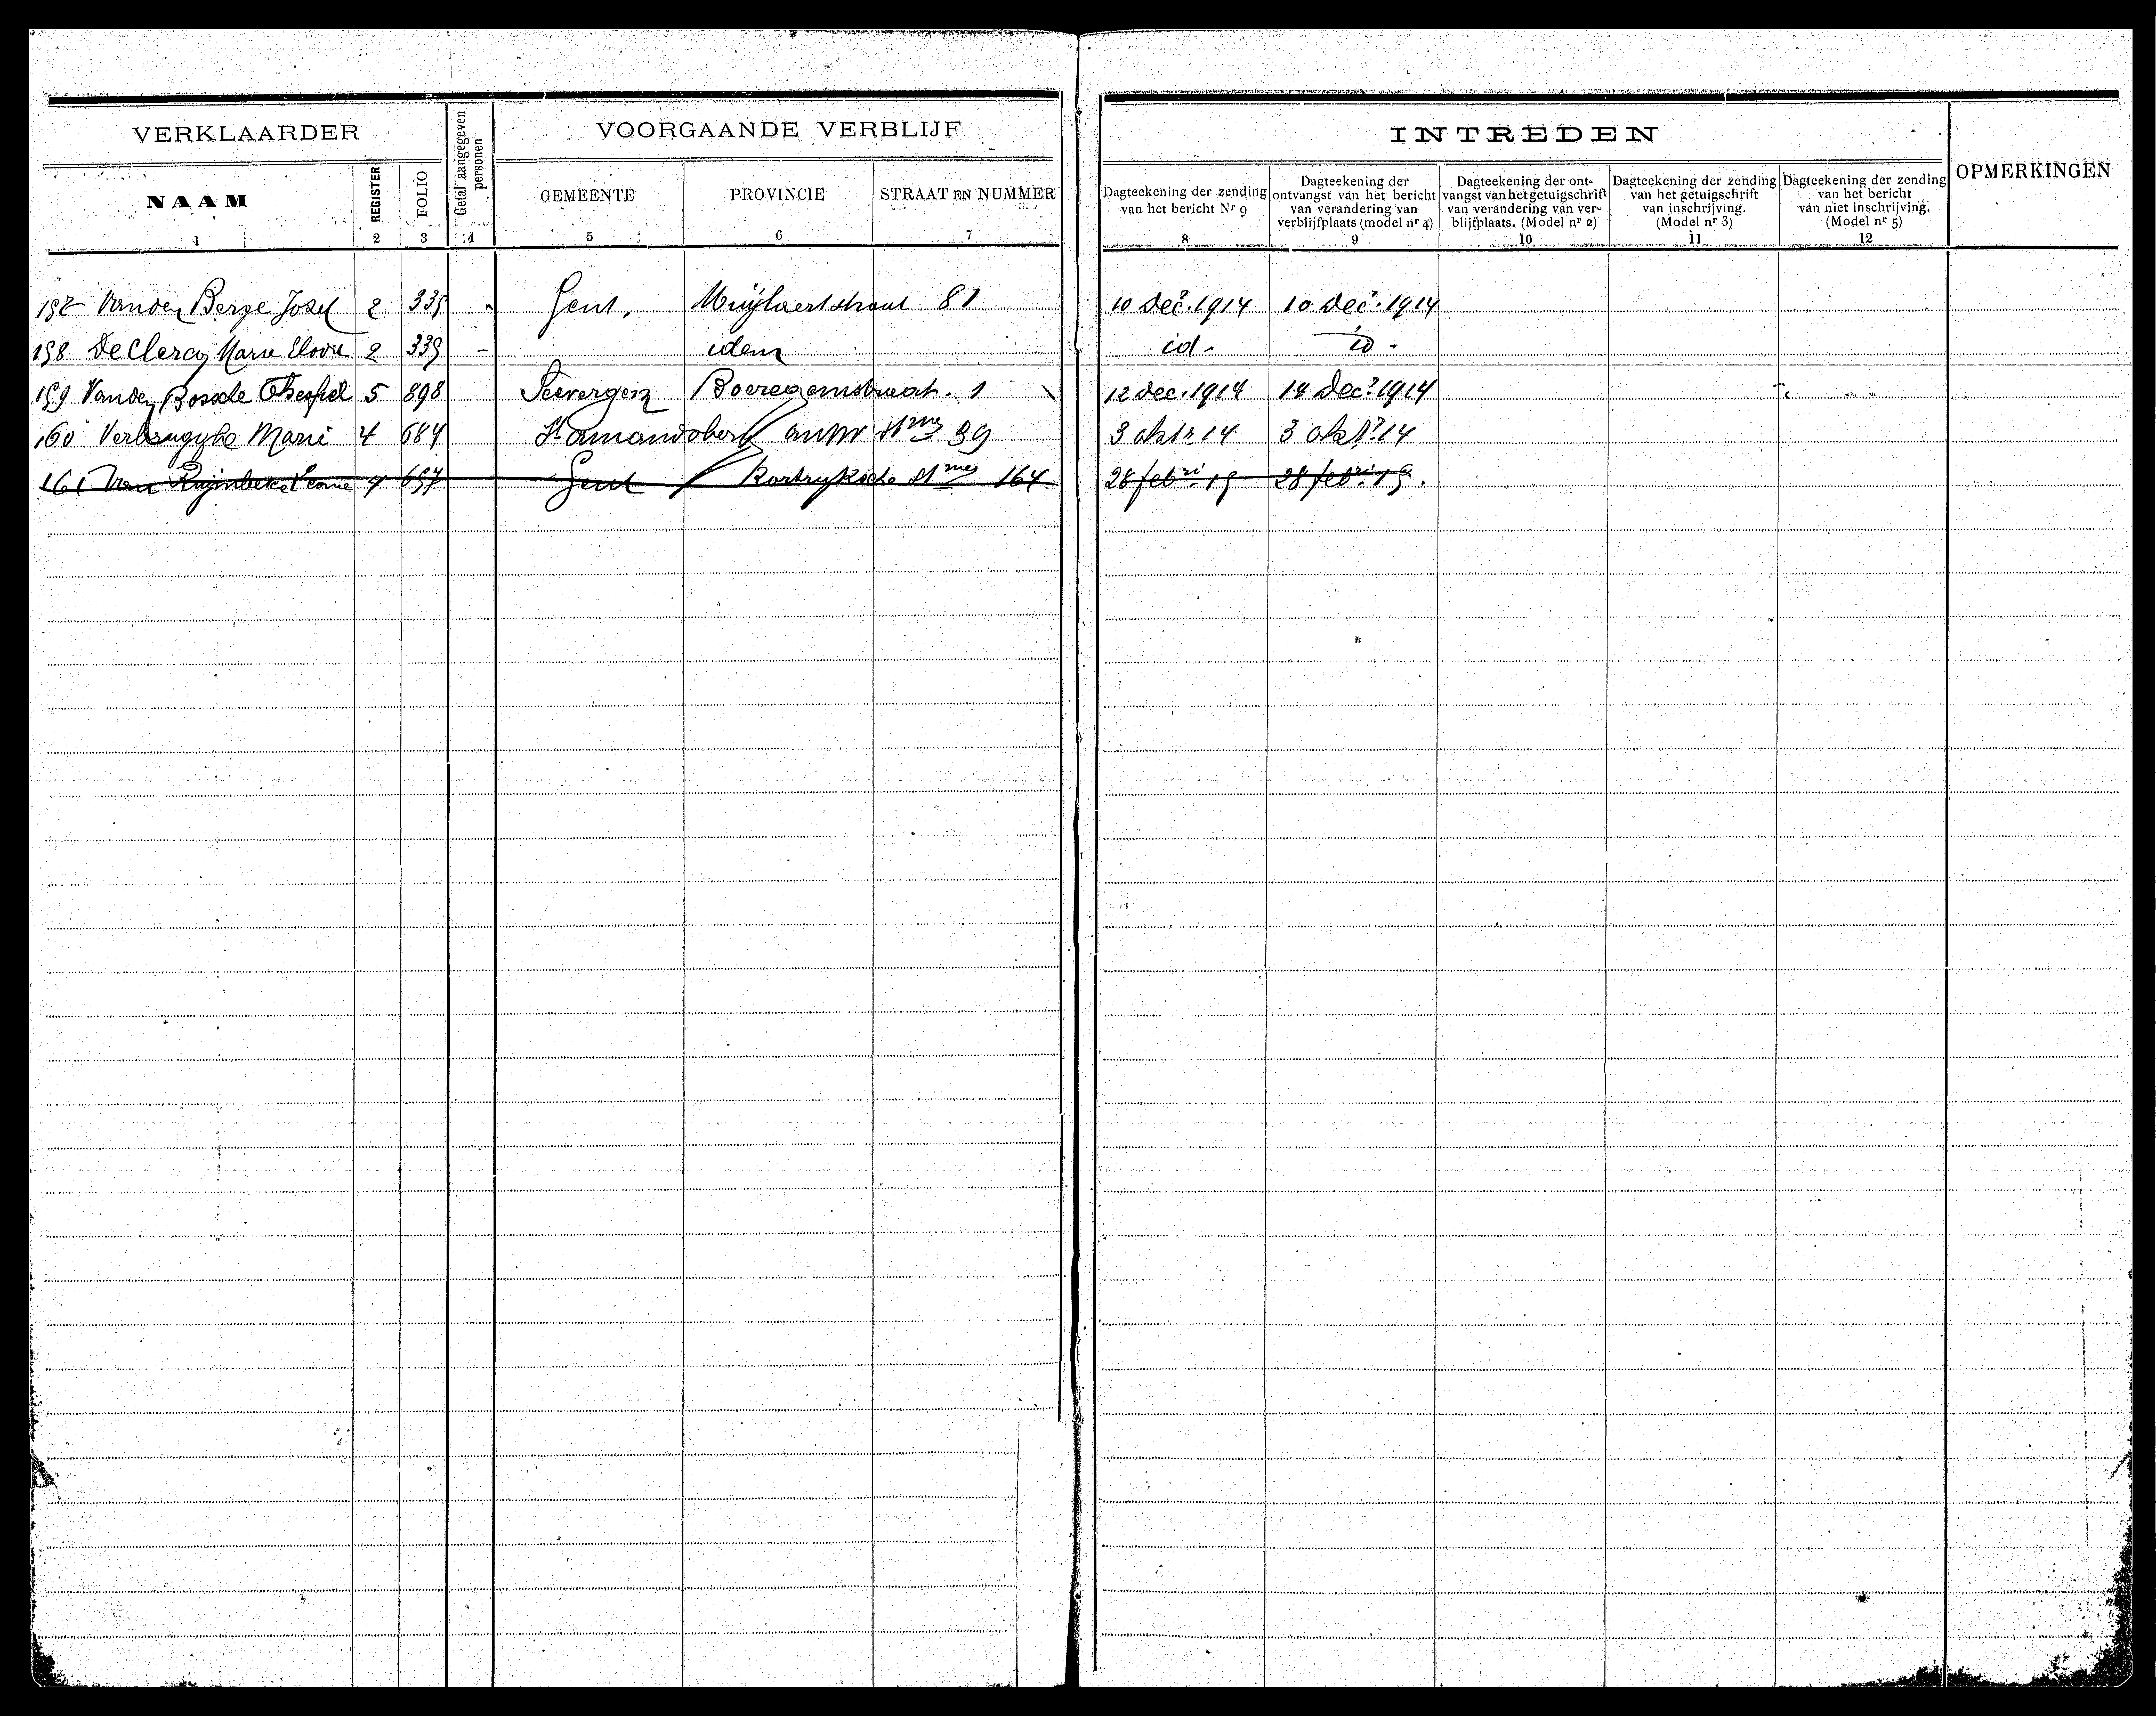 VERKLAARDER
Getal aangegeven personen
VOORGAANDE VERBLIJF
NAAM
REGISTER
FOLIO
GEMEENTE
PROVINCIE
STRAAT EN NUMMER
1 2 3 4 5 6 7
INTREDEN
OPMERKINGEN
Dagteekening der zending
van het bericht Nr 9
8
Dagteekening der
ontvangst van het bericht
van verandering van
verblijfplaats (model nr 4)
9
Dagteekening der ont-
vangst van het getuigschrift
van verandering van ver-
blijfplaats. (Model nr 2)
10
Dagteekening der zending
van het getuigschrift
van inschrijving.
(Model nr 3)
11
Dagteekening der zending
van het bericht
van niet inschrijving.
(Model nr 5)
12
Vanden Berge Jozef 2 339 Gent, Muylaertstraat 81 10 Dec. 1914 10 Dec. 1914
158 De Clercq Marie 2 339 - idem id - id -
159 Vanden Bossche 5 898 Severgem 1 12 dec. 1914 14 Dec. 1914
160 Marie 4 684 St Amandsberg 39 3 okt. 14 3 okt. 14
161 Van 4 657 Gent Kortryksche 164 28 feb 15 28 feb 15.